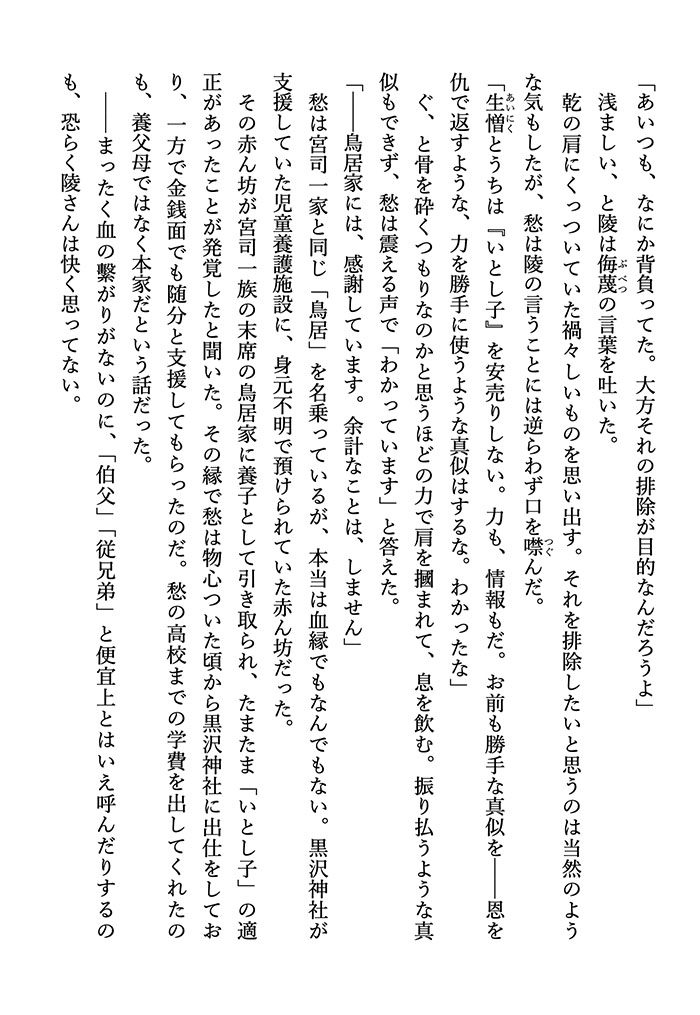 「あいつも、なにか背負ってた。大方それの排除が目的なんだろうよ」
浅ましい、と陵は侮蔑の言葉を吐いた。
乾の肩にくっついていた禍々しいものを思い出す。それを排除したいと思うのは当然のよう
な気もしたが、愁は陵の言うことには逆らわず口を噤んだ。
「生憎とうちは『いとし子』を安売りしない。力も、情報もだ。お前も勝手な真似を――恩を
仇で返すような、力を勝手に使うような真似はするな。わかったな」
ぐ、と骨を砕くつもりなのかと思うほどの力で肩を摑まれて、息を飲む。振り払うような真
似もできず、愁は震える声で「わかっています」と答えた。
「――鳥居家には、感謝しています。余計なことは、しません」
愁は宮司一家と同じ「鳥居」を名乗っているが、本当は血縁でもなんでもない。黒沢神社が
支援していた児童養護施設に、身元不明で預けられていた赤ん坊だった。
その赤ん坊が宮司一族の末席の鳥居家に養子として引き取られ、たまたま「いとし子」の適
正があったことが発覚したと聞いた。その縁で愁は物心ついた頃から黒沢神社に出仕をしてお
り、一方で金銭面でも随分と支援してもらったのだ。愁の高校までの学費を出してくれたの
も、養父母ではなく本家だという話だった。
――まったく血の繫がりがないのに、「伯父」「従兄弟」と便宜上とはいえ呼んだりするの
も、恐らく陵さんは快く思ってない。